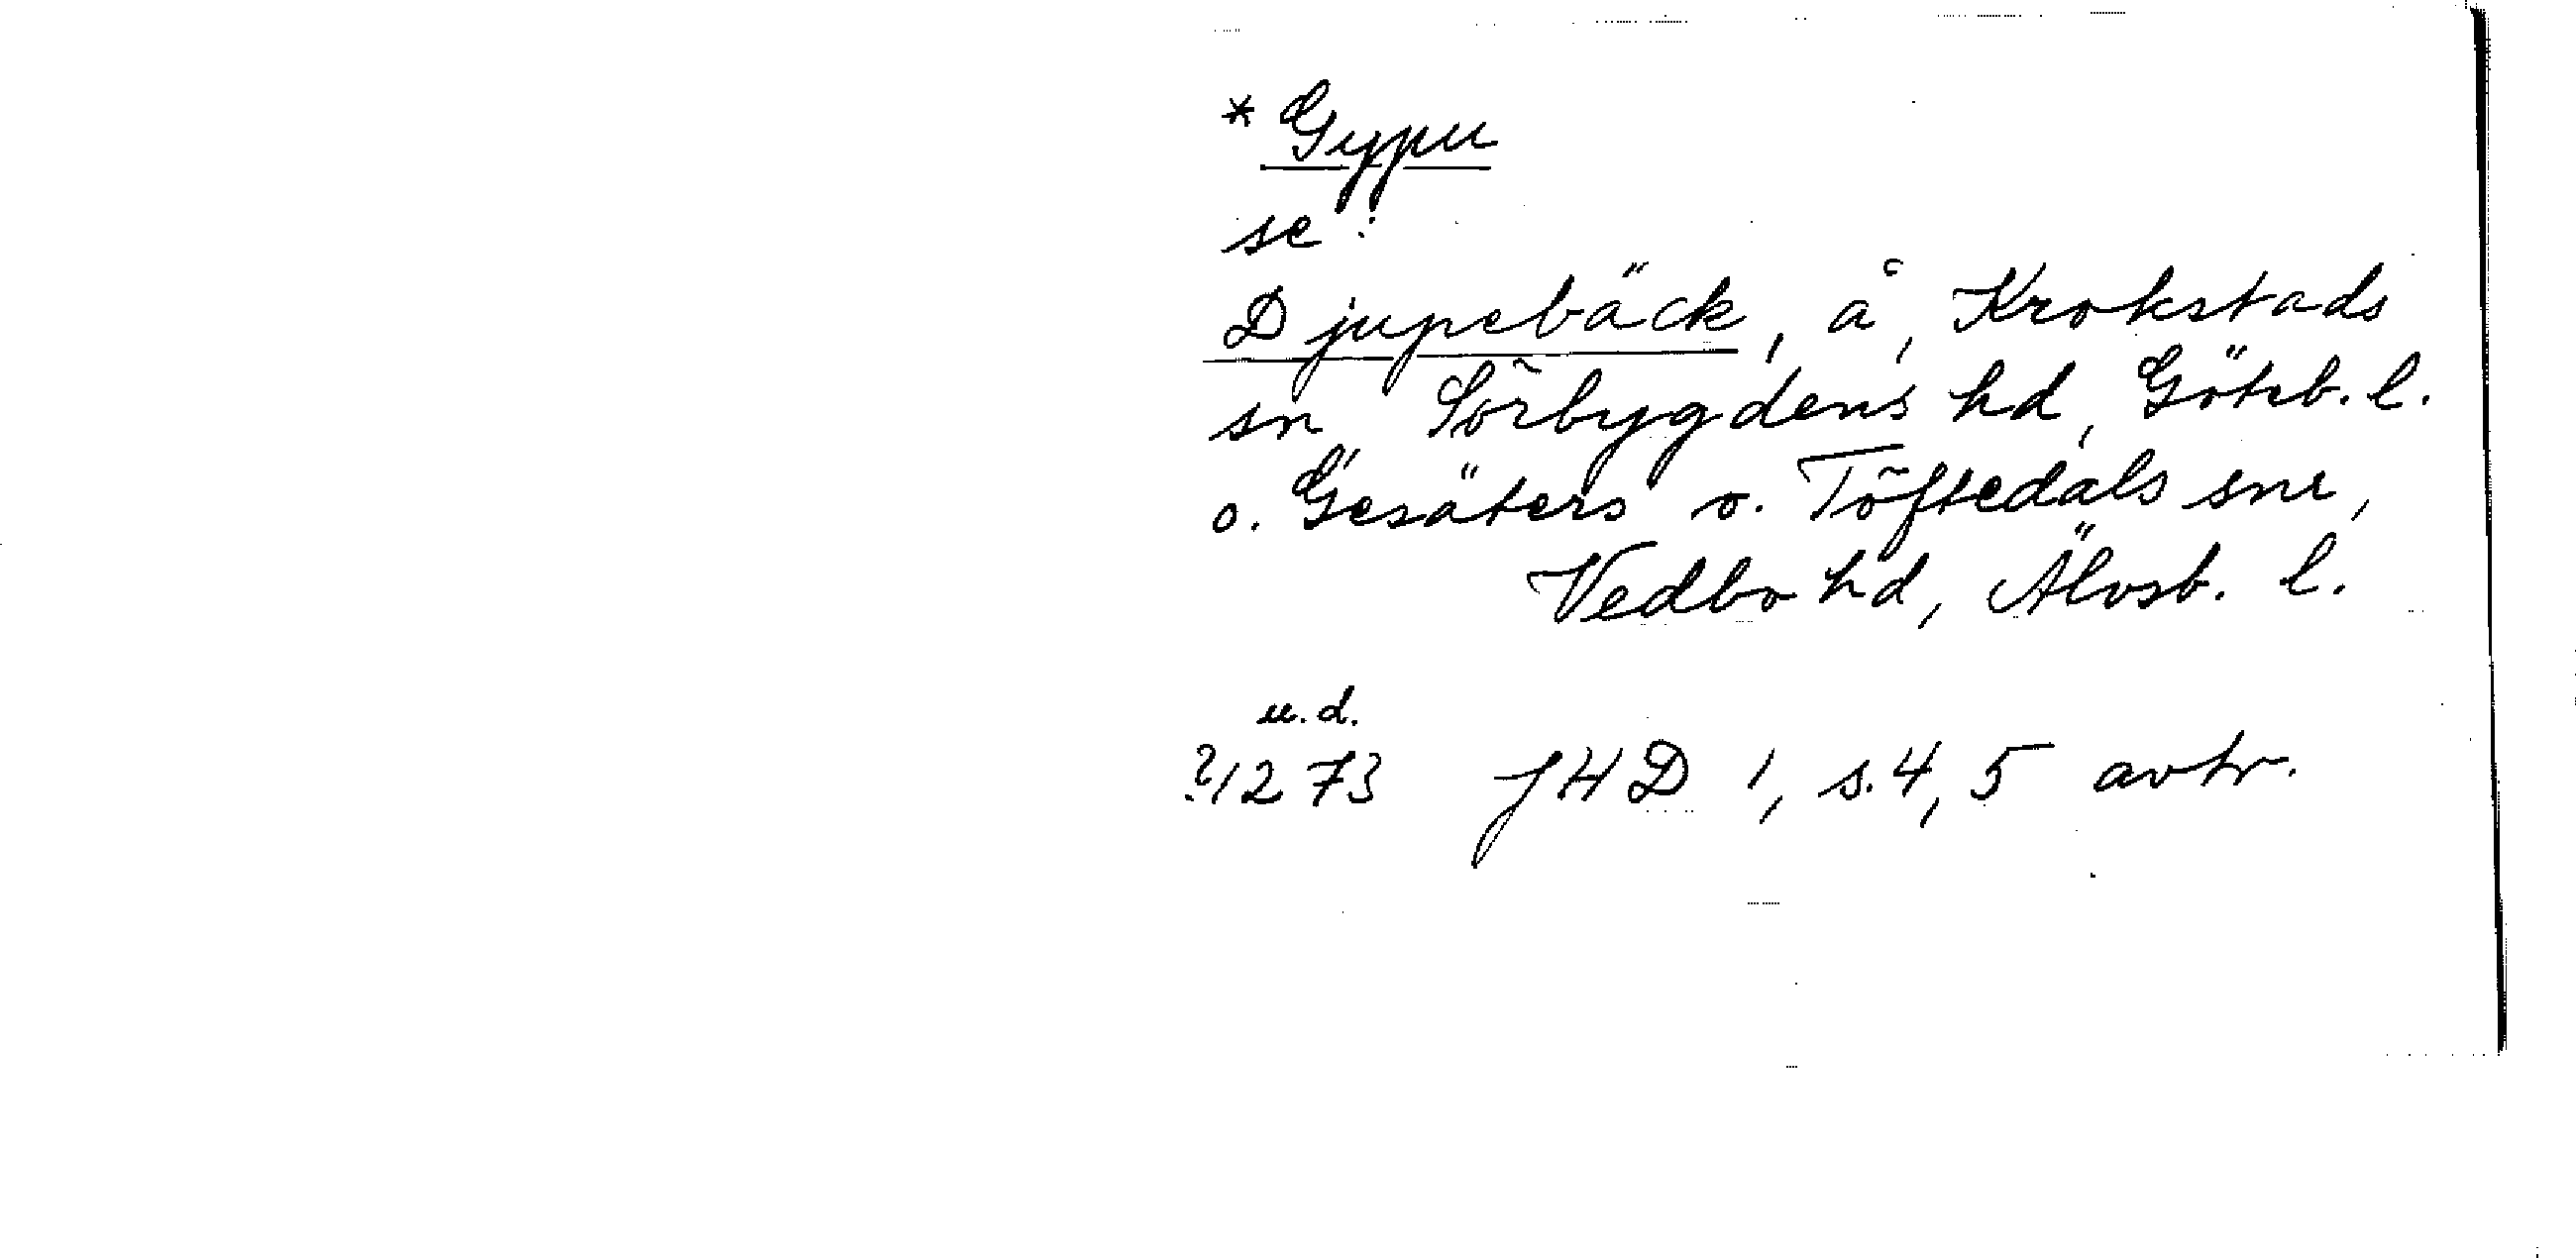 * Gypu
se:
Djupebäck, å, Krokstads
sn, Sörbygdens hd, Göteb. l.
o. Gesäters o. Töftedals snr,
Vedbo hd, Älvsb. l.
u.d.
?1273 JHD 1, s. 4, 5 avtr.